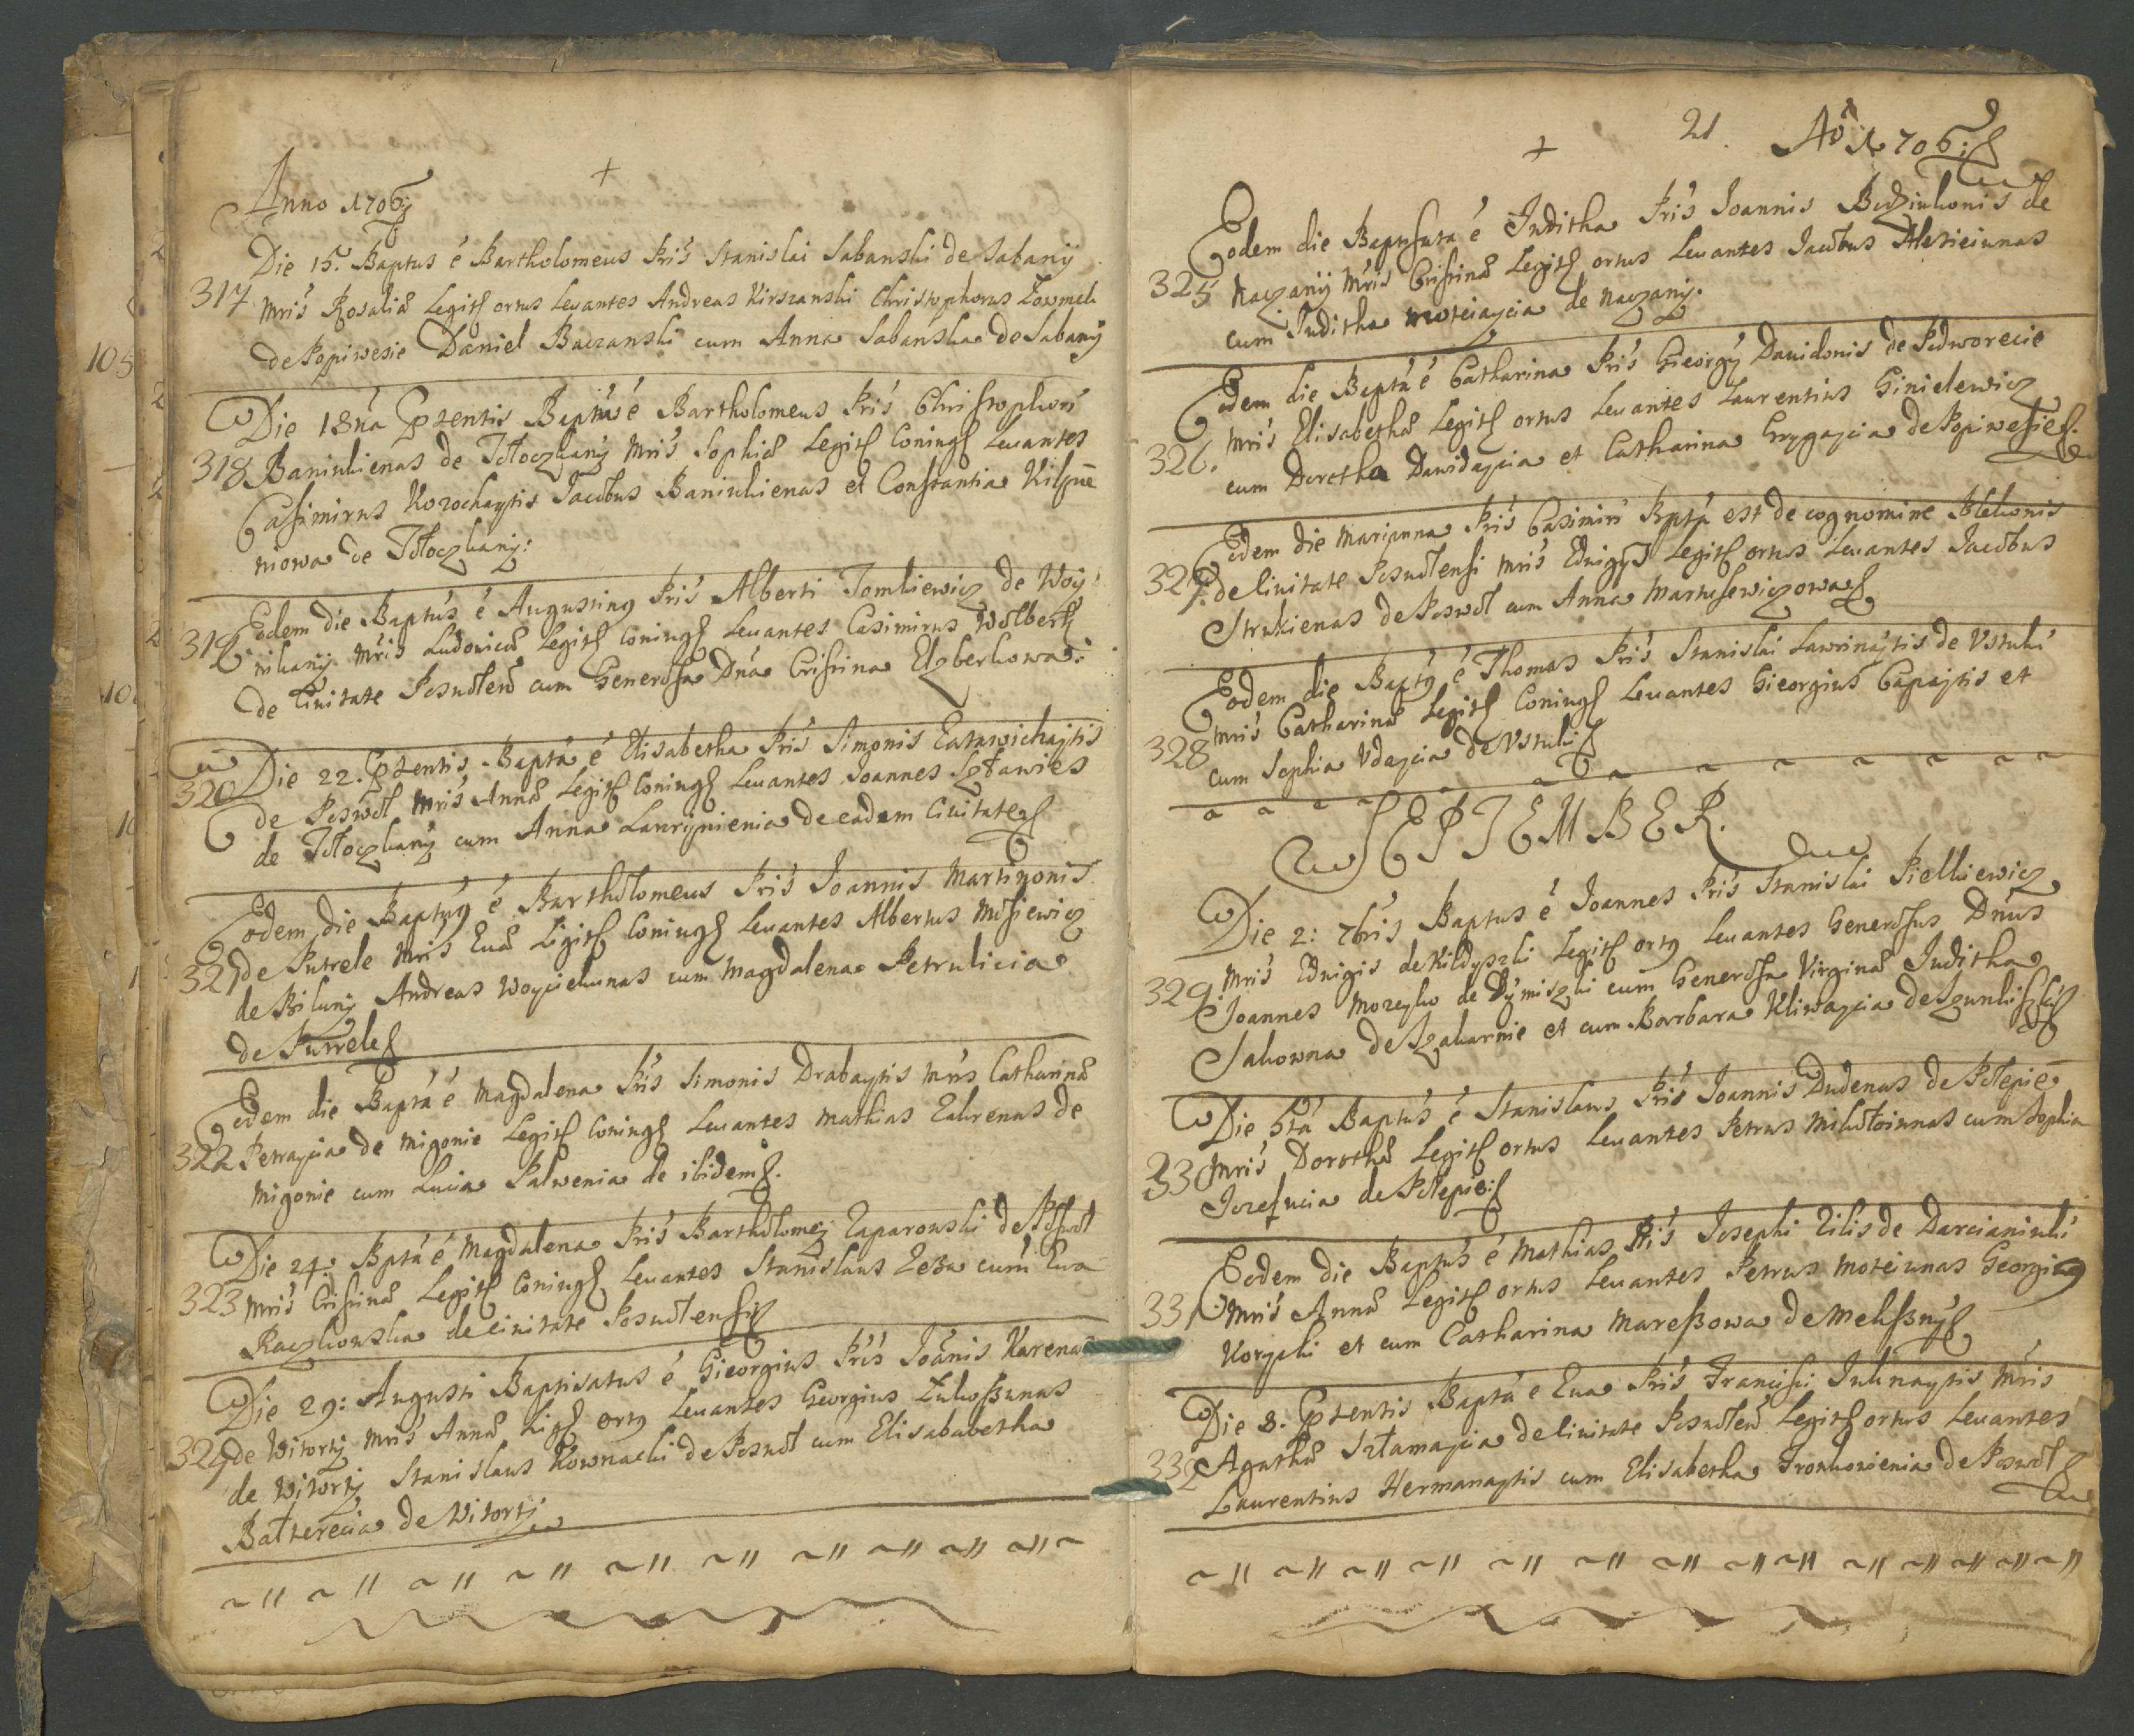 Anno 1706
+
Die 15. Baptus é Bartholomeus Pris Stanislai Sabanski de Sabany
317 Mris Rosaliæ Legit ortus Levantes Andreas Kirszanski Christophorus Zowmek
de Popiwesie Daniel Baczanski cum Anna Sabanska de Sabany
Die 18na Pntentis Baptus é Bartholomeus Pris Christophori
318 Baniukienas de Tołoczkany Mris Sophiæ Legit Coniug Levantes
Casimirus Korochaytis Jacobus Baniukienas et Constantia
niowa de Tołoczkany:
Eodem die Baptus é Augustinus Pris Alberti Tomkiewicz de Woy
319 nikany Mris Ludovicæ Legit Coniug Levantes Casimirus Wolbert
de Civitate cum Generosa Dna Cristina Elzberkowa:
Die 22. Pntentis Bapta é Elisabetha Pris Simonis
320 de Poswol Mris Annæ Legit Coniug Levantes Joannes
de Tołoczkany cum Anna Laurynienia de eadem Civitate
Eodem die Baptus é Bartholomeus Pris Joannis Martinonis
321 de Putrele Mris Evæ Legit Coniug Levantes Albertus Misiewicz
de Biluny Andreas Woyciekunas cum Magdalena Petrulicia
de Putrele
Eodem die Bapta é Magdalena Pris Simonis Drabaytis Mris Catharinæ
322 Petraycia de Migonie Legit Coniug Levantes Mathias Zakrenas de
Migonie cum Lucia Palwenia de ibidem.
Die 24: Bpta é Magdalena Pris Bartholomei Zaparowski de Poswol
323 Mris Cristinæ Legit Coniug Levantes Stanislaus cum Eva
Raczkowska de Civitate Posvolensi
Die 29: Augusti Baptisatus é Gieorgius Pris Joanis Karenas
324 de Witorty Mris Annæ Lig ortus Levantes Georgius
de Witorty Stanislaus Kownacki de Posvol cum Elisababetha
Batterecia de Witorty
21 Ao 1706:
+
Eodem die Baptisata é Juditha Pris Joannis Budziukonis de
325 Naczany Mris Cristinæ Legit ortus Levantes Jacobus Alexieiunas
cum Juditha Moteiaycia de Naczany.
Eodem die Bapta é Catharina Pris Gieorgy Davidonis de Podworecie
326. Mris Elisabethæ Legit ortus Levantes Laurentius Ginielewicz
cum Dorotha Dawidaycia et Catharina Grygaycia de Popiwesie.
Eodem die Marianna Pris Casimiri Bpta est de cognomine Blekonis
327. de Civitate Posvolensi Mris Edvigis Legit ortus Levantes Jacobus
Strukienas de Poswol cum Anna Martusewiczowa
Eodem die Baptus é Thomas Pris Stanislai Lawrinaytis de Ustuki
328 Mris Catharinæ Legit Coniug Levantes Gieorgius Capaytis et
cum Sophia Udaycia de Ustuki
SEPTEMBER.
Die 2: 7bris Baptus é Joannes Pris Stanislai Pielkiewicz
329 Mris Edvigis de Kildyszki Legit ortus Levantes Generosus Dnus
Joannes Morzyko de Dymiszki cum Generosa Virginæ Juditha
Sakowna de Szakarnie et cum Barbara Kliwaycia de
Die 5ta Baptus é Stanislaus Pris Joannis Dudenas de Polepie
330 Mris Dorothæ Legit ortus Levantes Petrus Mikołoiunas cum Sophia
Jozefucia de Polepie:
Eodem die Baptus é Mathias Pris Josephi Zilis de Darcianiuki
331 Mris Annæ Legit ortus Levantes Petrus Moteiunas Georgius
Korycki et cum Catharina Mareszowa de
Die 8. Pntentis Bapta é Eva Pris Francisci Juknaytis Mris
332 Agathæ de Civitate Legit ortus Levantes
Laurentius Hermanaytis cum Elisabetha de Poswol